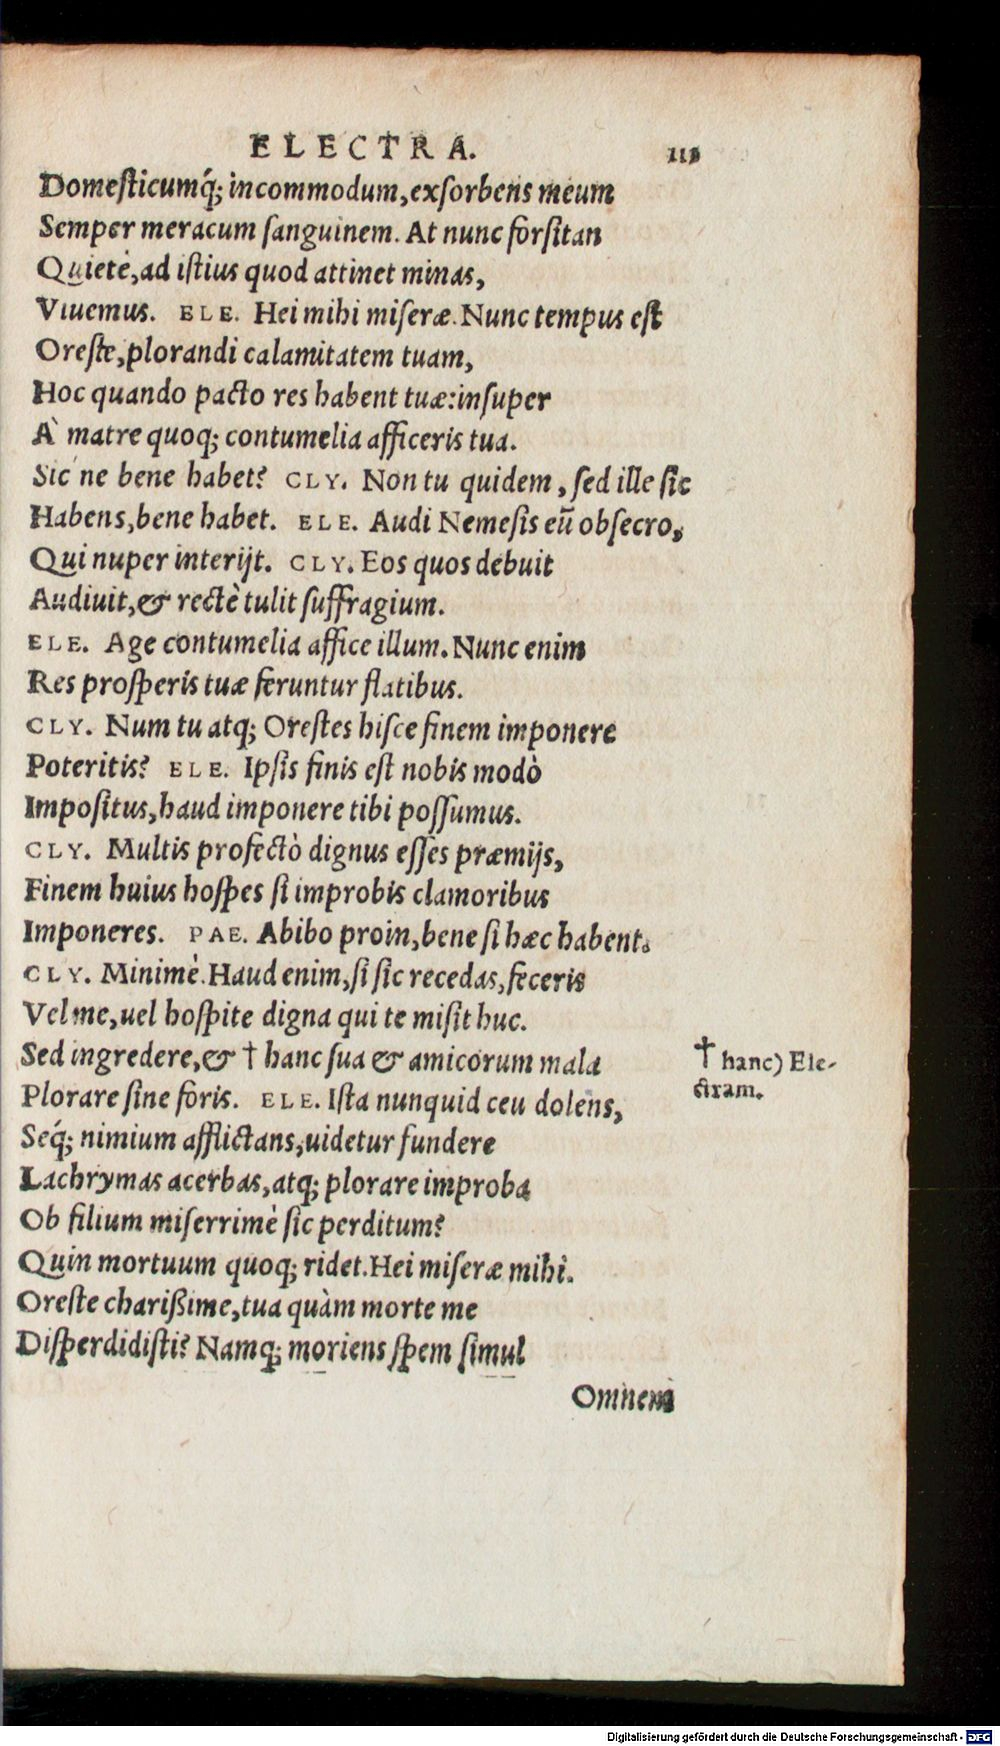 ELECTRA.
Domesticumq́; incommodum, exsorbens meum
Semper meracum sanguinem. At nunc forsitan
Quietè, ad istius quod attinet minas,
Viuemus. ELE. Hei mihi miseræ. Nunc tempus est
Oreste, plorandi calamitatem tuam,
Hoc quando pacto res habent tuæ: insuper
À matre quoq; contumelia afficeris tua.
Sic' ne bene habet? CLY. Non tu quidem, sed ille sic
Habens, bene habet. ELE. Audi Nemesis eū obsecro,
Qui nuper interijt. CLY. Eos quos debuit
Audiuit, & rectè tulit suffragium.
ELE. Age contumelia affice illum. Nunc enim
Res prosperis tuæ feruntur flatibus.
CLY. Num tu atq; Orestes hisce finem imponere
Poteritis? ELE. Ipsis finis est nobis modò
Impositus, haud imponere tibi possumus.
CLY. Multis profectò dignus esses præmijs,
Finem huius hospes si improbis clamoribus
Imponeres. PAE. Abibo proin, bene si hæc habent.
CLY. Minimè. Haud enim, si sic recedas, feceris
Vel me, uel hospite digna qui te misit huc.
Sed ingredere, & † hanc sua & amicorum mala
Plorare sine foris. ELE. Ista nunquid ceu dolens,
Seq́; nimium afflictans, uidetur fundere
Lachrymas acerbas, atq; plorare improba
Ob filium miserrimè sic perditum?
Quin mortuum quoq; ridet. Hei miseræ mihi.
Oreste charißime, tua quàm morte me
Disperdidisti? Namq; moriens spem simul
Omnem
† hanc) Ele-
ctram.
Digitalisierung gefördert durch die Deutsche Forschungsgemeinschaft - DFG